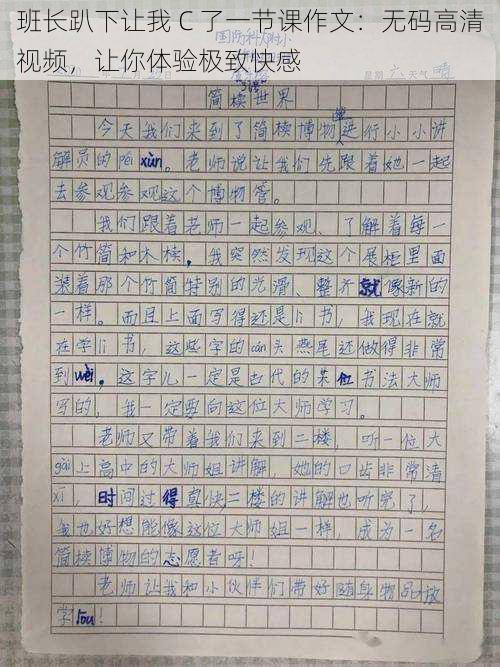 简牍世界
今天我们来到了简牍博物馆进行小小讲
解员的péi xùn。老师说让我们先跟着她一起
去参观参观这个博物馆。
我们跟着老师一起参观、了解着每一
个竹简和木牍，我突然发现这个展柜里面
装着那个竹简特别的光滑、整齐就像新的
一样。而且上面写得还是lì书，我现在就
在学lì书，这些字的cán头燕尾还做得非常
到wèi。这字儿一定是古代的某位书法大师
写的，我一定要向这位大师学习。
老师又带着我们来到二楼，听一位大
gāi上高中的大师姐讲解，她的口齿非常清
xī，时间过得真快，二楼的讲解也听完了，
我也好想能像这位大师姐一样，成为一名
简牍博物的志愿者呀！
老师让我和小伙伴们带好随身物品放
学lou！